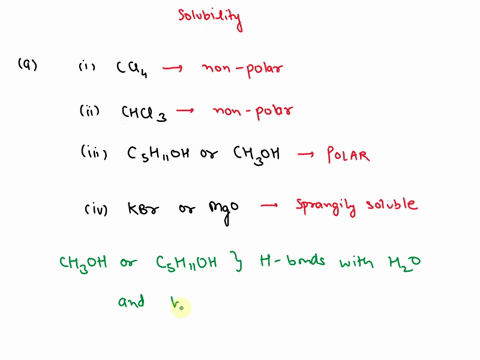 Solubility
(a) (i) CCl4 → non-polar
(ii) CHCl3 → non-polar
(iii) C5H11OH or CH3OH → POLAR
(iv) KBr or MgO → Sprangily soluble
CH3OH or C5H11OH } H-bonds with H2O
and